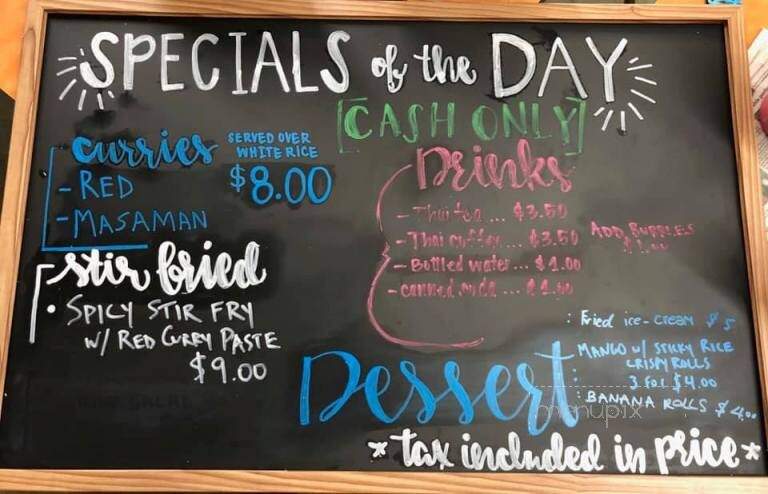 SPECIALS of the DAY
[CASH ONLY]
curries SERVED OVER WHITE RICE
- RED $8.00
- MASAMAN
stir fried
• SPICY STIR FRY
W/ RED CURRY PASTE
$9.00
Drinks
- Thai tea ... $3.50
- Thai coffee ... $3.50
ADD BUBBLES
$1.00
- Bottled water ... $1.00
- canned soda ... $1.00
Dessert
: Fried ice-cream $5
: MANGO w/ STICKY RICE
CRISPY ROLLS
3 for $4.00
: BANANA ROLLS $4.00
menupix
* tax included in price *